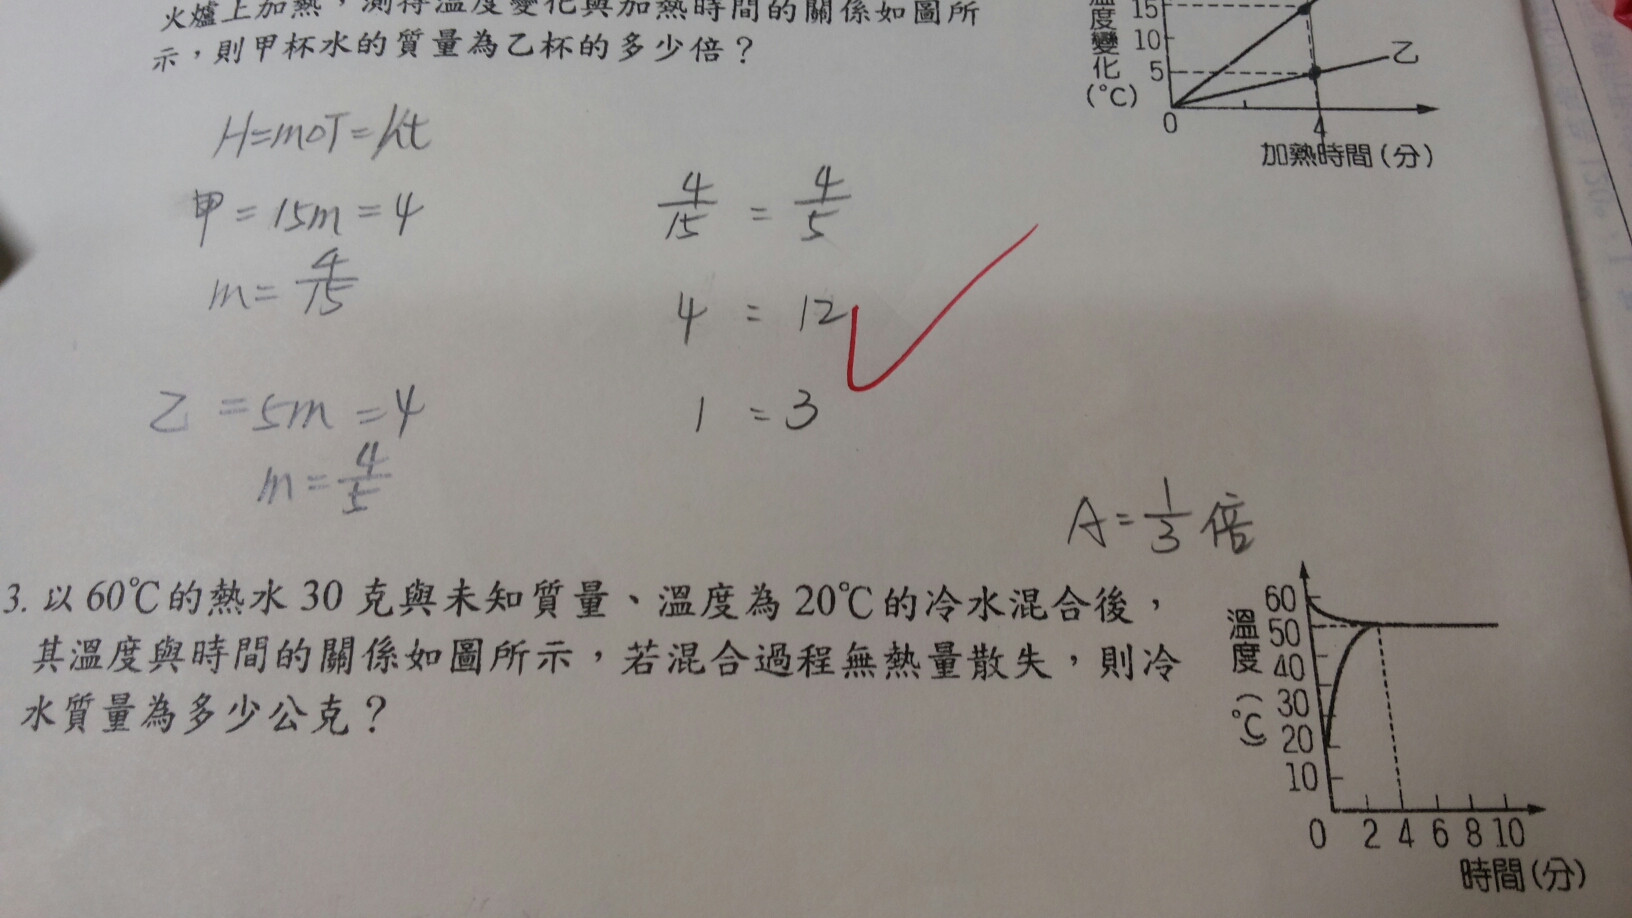 火爐上加熱，測得溫度變化與加熱時間的關係如圖所
示，則甲杯水的質量為乙杯的多少倍？
溫度變化(℃)
15
10
5
0
4
乙
加熱時間(分)
H=mΔT=ht
甲=15m=4
m=4/15
乙=5m=4
m=4/5
4/15 = 4/5
4 = 12
1 = 3
A=1/3倍
3. 以60℃的熱水30克與未知質量、溫度為20℃的冷水混合後，
其溫度與時間的關係如圖所示，若混合過程無熱量散失，則冷
水質量為多少公克？
溫度(℃)
60
50
40
30
20
10
0 2 4 6 8 10
時間(分)